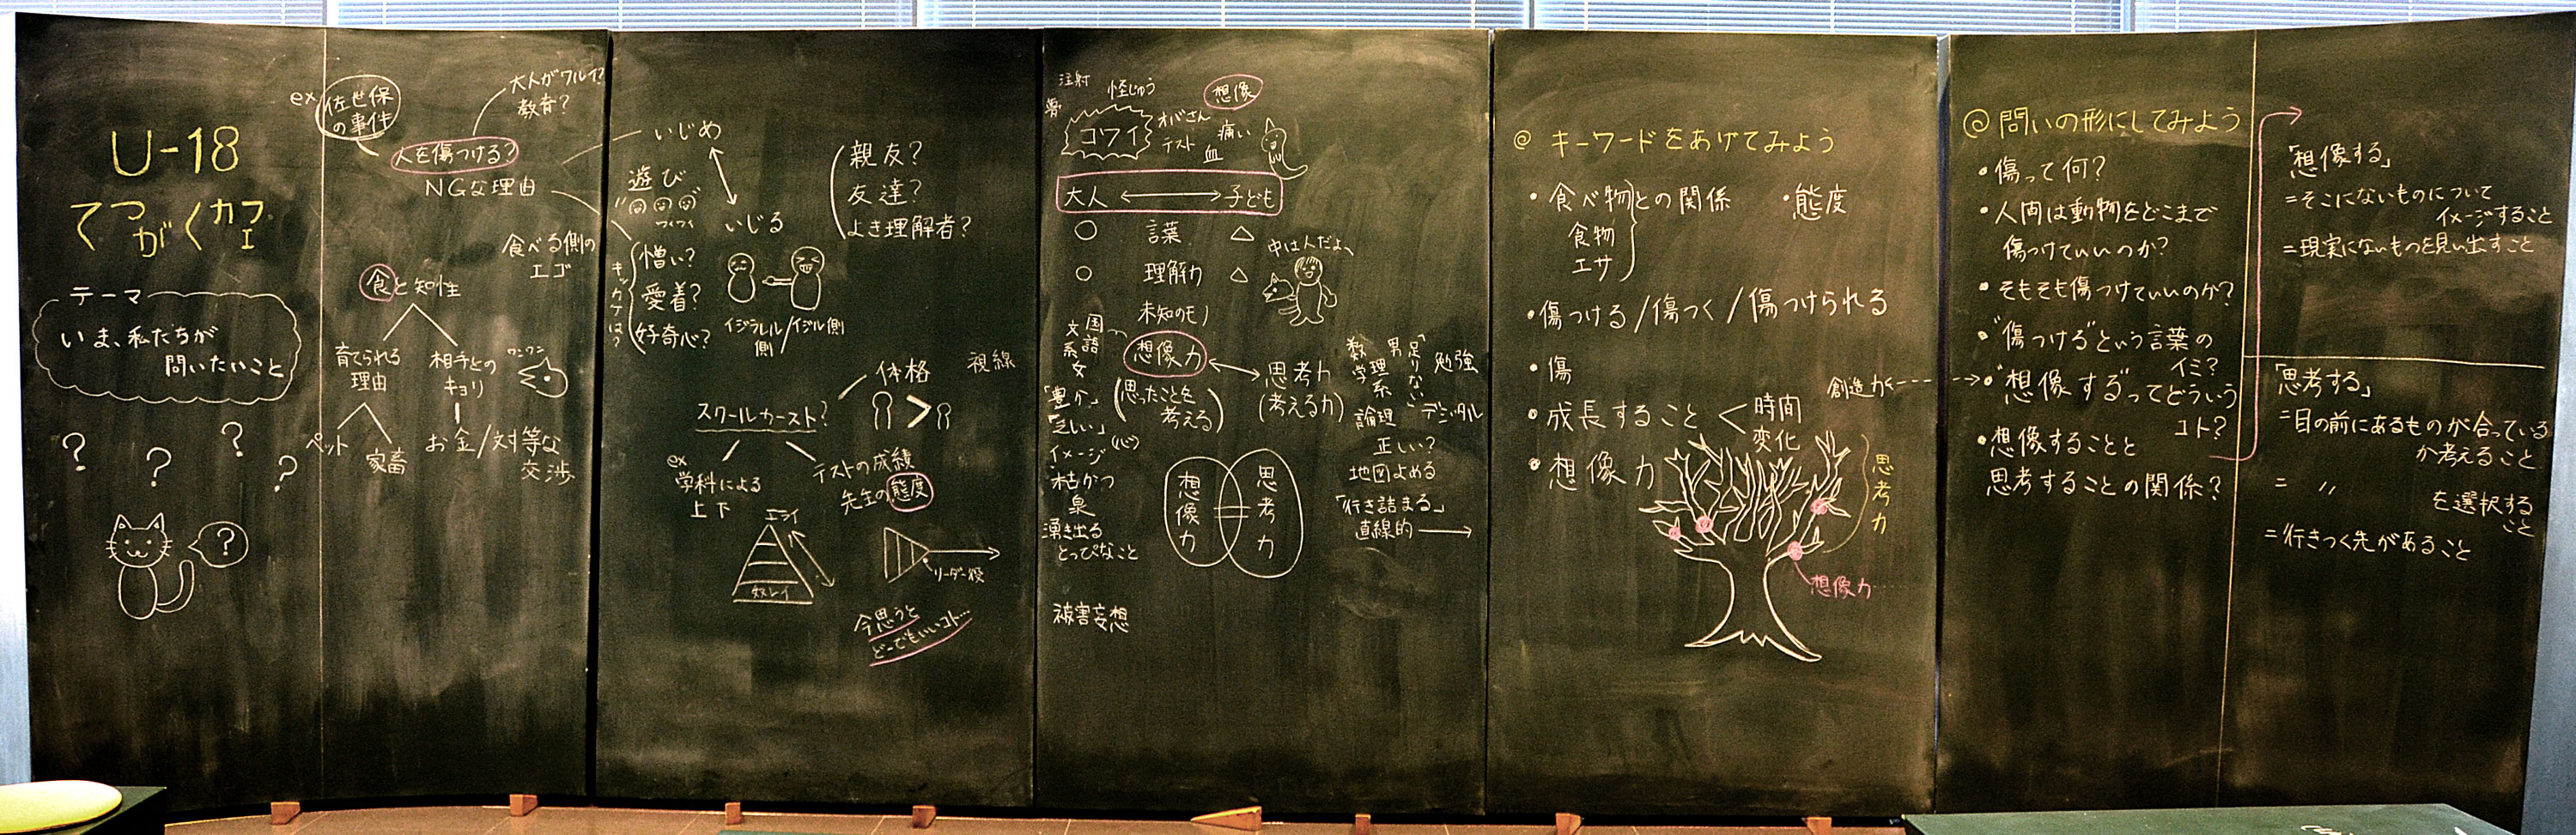 U-18
てつがくカフェ
テーマ
いま、私たちが
問いたいこと
? ? ? ?
?
ex
佐世保
の事件
大人がワルイ?
教育?
人を傷つける?
NGな理由
食べる側の
エゴ
食と知性
育てられる
理由
相手との
キョリ
ワンワン
ペット
家畜
お金/対等な
交渉
いじめ
遊び
つくつく
いじる
親友?
友達?
よき理解者?
キッカケは?
憎い?
愛着?
好奇心?
イジラレル側/イジル側
体格
視線
>
スクールカースト?
ex
学科による
上下
テストの成績
先生の態度
エライ
ドレイ
リーダー役
今思うと
どーでもいいコト…
注射
怪じゅう
想像
コワイ
オバさん
テスト
痛い
血
大人 ⟷ 子ども
○ 言葉 △
○ 理解力 △
未知のモノ
中は人だよ、
国語
文系
女
想像力
(思ったことを
考える)
思考力
(考える力)
数学
理系
男
「足りない」
勉強
論理
デジタル
正しい?
地図よめる
「行き詰まる」
直線的
「豊か」
「乏しい」
イメージ(心)
枯かつ
泉
湧き出る
とっぴなこと
想像力
思考力
被害妄想
@ キーワードをあげてみよう
・食べ物との関係
食物
エサ
・態度
・傷つける/傷つく/傷つけられる
・傷
・成長すること < 時間
変化
・想像力
創造力
思考力
想像力
@ 問いの形にしてみよう
・傷って何?
・人間は動物をどこまで
傷つけていいのか?
・そもそも傷つけていいのか?
・"傷つける"という言葉の
イミ?
・"想像する"ってどういう
コト?
・想像することと
思考することの関係?
「想像する」
=そこにないものについて
イメージすること
=現実にないものを見い出すこと
「思考する」
=目の前にあるものが合っている
か考えること
= 〃 を選択する
こと
=行きつく先があること